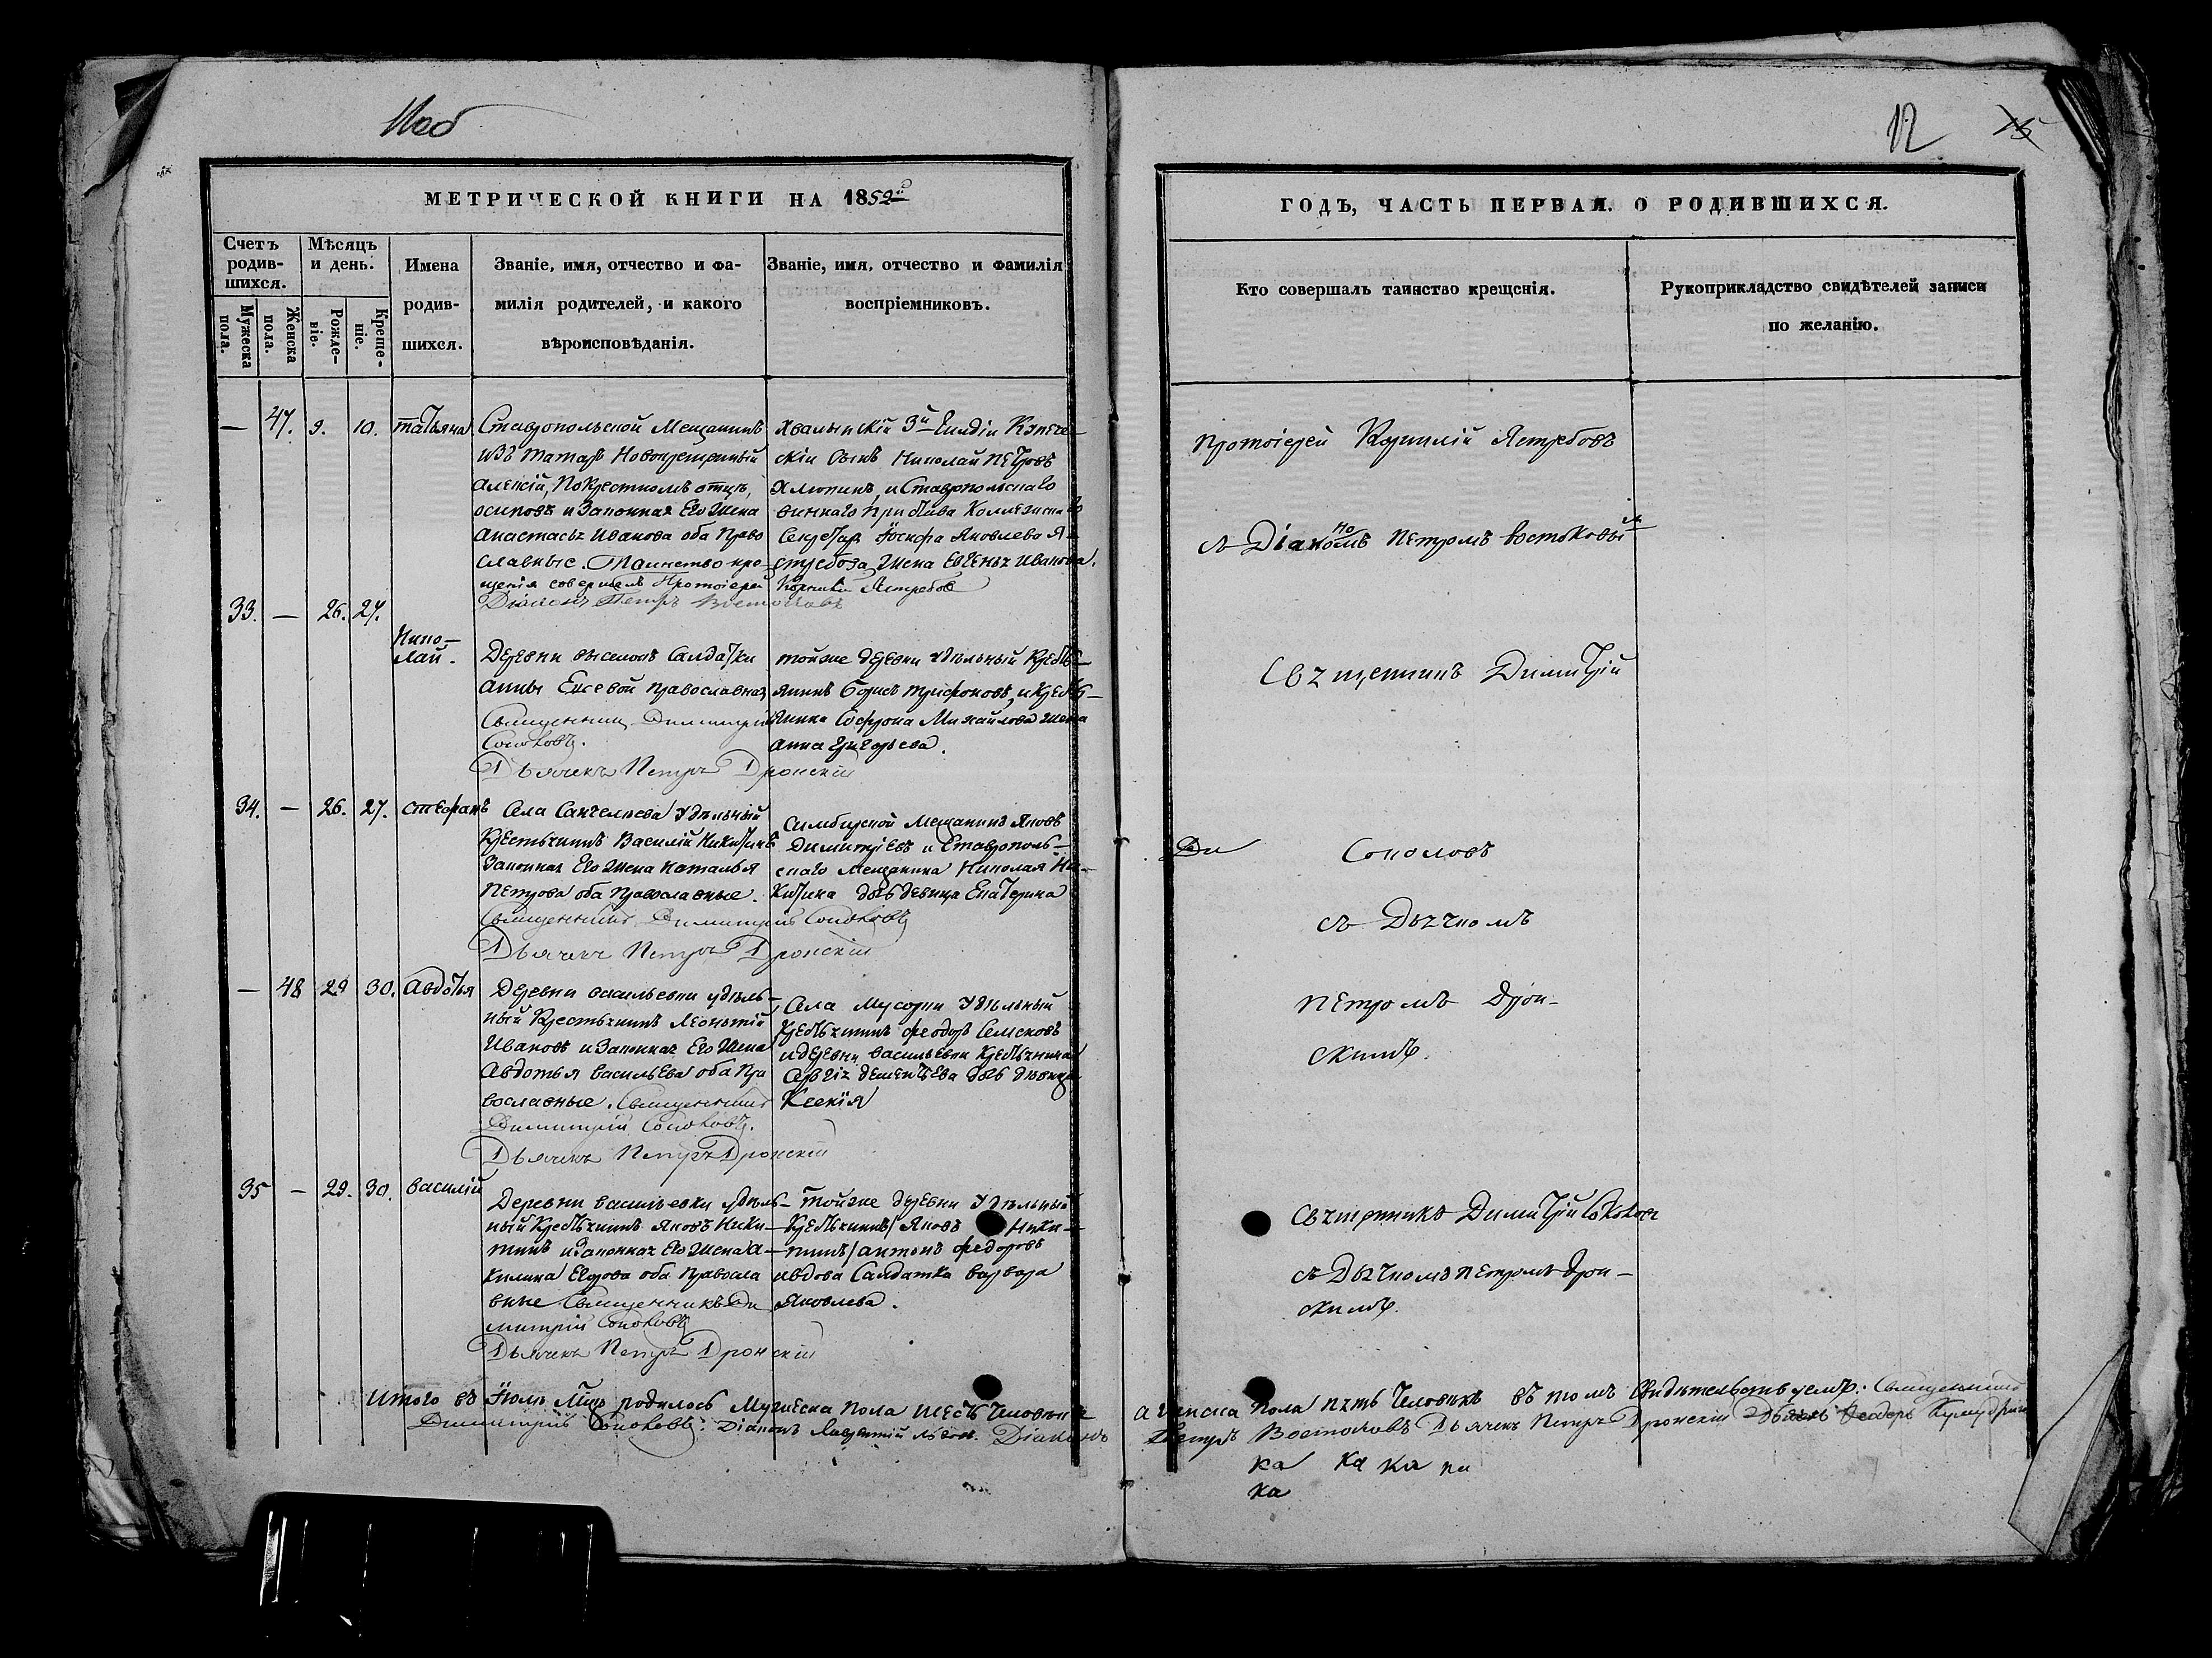 12
МЕТРИЧЕСКОЙ КНИГИ НА 1852й
ГОДЪ, ЧАСТЬ ПЕРВАЯ. О РОДИВШИХСЯ.
Счетъ родив-шихся.
Мужеска пола.
Женска пола.
Мѣсяцъ и день.
Рожде-ніе.
Креще-ніе.
Имена родив-шихся.
Званіе, имя, отчество и фа-
милія родителей, и какого
вѣроисповѣданія.
Званіе, имя, отчество и фамилія
воспріемниковъ.
Кто совершалъ таинство крещенія.
Рукоприкладство свидѣтелей записи
по желанію.
— 47. 9. 10. Татьяна
Ставропольской Мещанинъ
изъ татаръ Новокрещенный
Алексій, По Крестномъ отцѣ,
Осиповъ и Законная Его Жена
Анастасья Иванова оба Право
славные. Таинство кре-
щенія совершилъ Протоіерей
Діаконъ Петръ Востоковъ
Хвалынскій 3й Гилдіи Купече-
скій Сынъ Николай Петровъ
и Ставропольскаго
виннаго Пристава
Секретаря Іосифа Яковлева Я-
стребова Жена Евгенья Иванова.
Корнилій Ястребовъ
Протоіерей Корнилій Ястребовъ
съ Діакономъ Петромъ Востоковым
33. — 26. 27. Нико-
лай.
Деревни выселокъ Салдатки
Анны Православная
Священникъ Димитрій
Соколовъ.
Дьячекъ Петръ Дронскій
тойже деревни Удѣльный Крестья-
янинъ Борисъ Трифоновъ, и Крестья-
янина Софрона Михайлова жена
Анна Григорьева.
Священникъ Димитрій
34. — 26. 27. Стефанъ
Села Удѣльный
Крестьянинъ Василій Никитинъ
Законная Его Жена Наталья
Петрова оба Православные.
Священникъ Димитрій Соколовъ
Дьячекъ Петръ Дронскій
Симбирской Мещанинъ Яковъ
Димитріевъ и Ставрополь-
скаго Мещанина Николая Ни-
китина дочь девица Екатерина
Ди Соколовъ
съ Дьячкомъ
— 48 29 30. Авдотья
Деревни Васильевки удѣль-
ный Крестьянинъ Леонтій
Ивановъ и Законная Его Жена
Авдотья Васильева оба Пра
вославные. Священникъ
Димитрій Соколовъ.
Дьячекъ Петръ Дронскій
Села Мусорки Удѣльный
Крестьянинъ Феодоръ Семеновъ
и деревни Васильевки Крестьянина
Сергія Дементьева дочь дѣвица
Ксенія
Петромъ Дрон-
скимъ.
35 — 29. 30. Василій
Деревни Васильевки удѣль-
ный Крестьянинъ Яковъ Ники-
тинъ и Законная Его Жена А-
килина Егорова оба Правосла
вные Священникъ Ди
митрій Соколовъ
Дьячекъ Петръ Дронскій
Тойже деревни Удѣльный
Крестьянинъ Яковъ Ники-
тинъ/Антонъ Федоровъ
и вдова Салдатка Варвара
Яковлева.
Священникъ Димитрій Соколовъ
съ Дьячкомъ Петромъ Дрон-
скимъ.
Итого въ Іюлѣ Мцѣ родилось Мужеска пола шесть Человѣкъ
а Женска пола пять Человѣкъ въ томъ Свидѣтельствуемъ: Священникъ
Димитрій Соколовъ. Діаконъ Лаврентій Діаконъ
Петръ Востоковъ Дьячекъ Петръ Дронскій
ка ка ка ка
ка